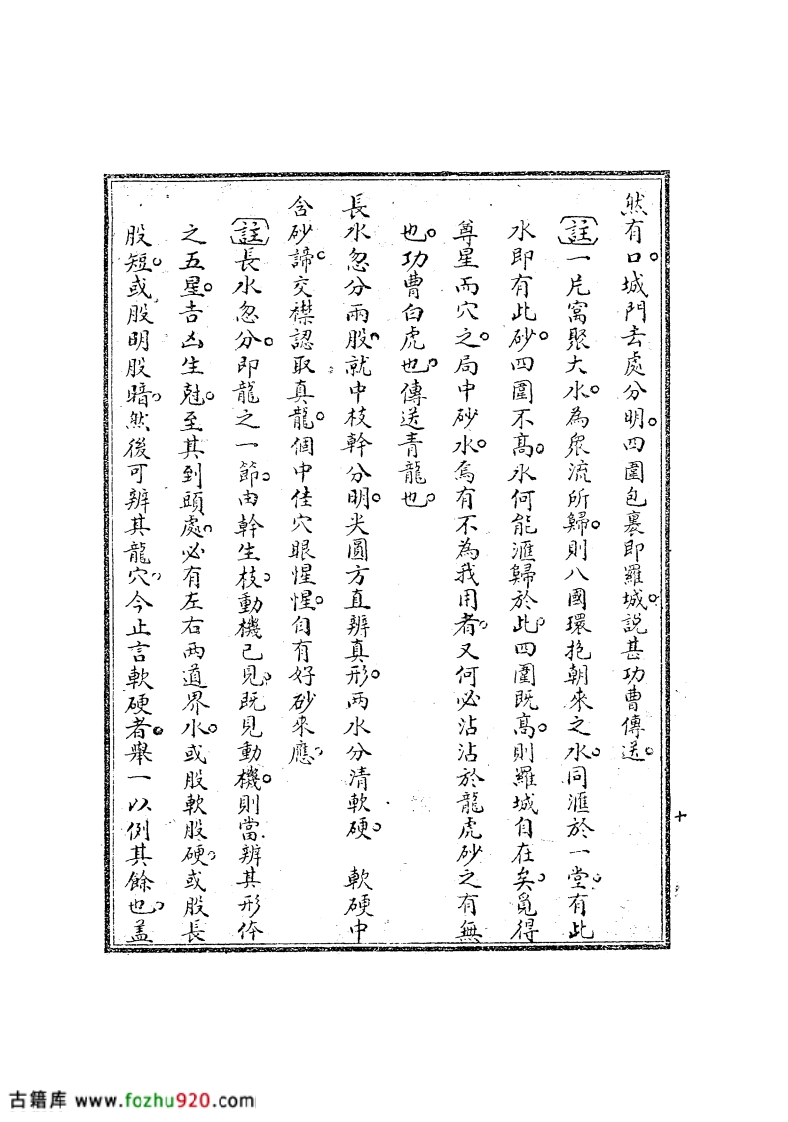 然有口。城門去處分明。四圍包裹即羅城。說甚功曹傳送。
註一片窩聚大水。為衆流所歸。則八國環抱朝來之水。同滙於一堂。有此
水即有此砂。四圍不高。水何能滙歸於此。四圍既高。則羅城自在矣。覓得
尊星而穴之。局中砂水。焉有不為我用者。又何必沾沾於龍虎砂之有無
也。功曹白虎也。傳送青龍也。
長水忽分兩股。就中枝幹分明。尖圓方直辨真形。兩水分清軟硬。 軟硬中
含砂諦。交襟認取真龍。個中佳穴眼惺惺。自有好砂來應。
註長水忽分。即龍之一節。由幹生枝。動機已見。既見動機。則當辨其形体
之五星。吉凶生尅。至其到頭處。必有左右兩道界水。或股軟股硬。或股長
股短。或股明股暗。然後可辨其龍穴。今止言軟硬者。舉一以例其餘也。盖
十
古籍库 www.fozhu920.com